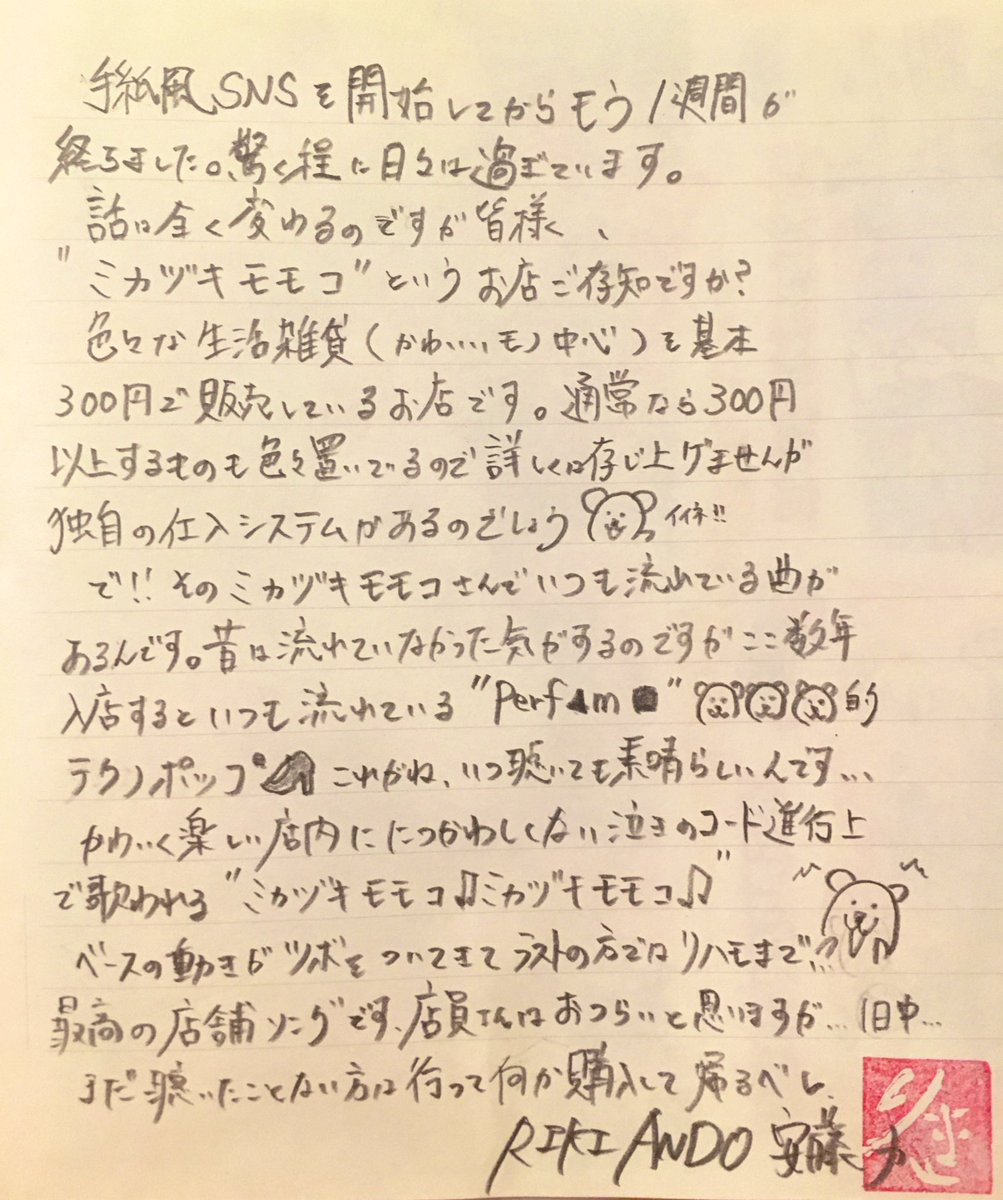 手紙風SNSを開始してからもう1週間が
終ろました。驚く程に日々は過ぎています。
話は全く変わるのですが皆様、
"ミカヅキモモコ"というお店ご存知ですか?
色々な生活雑貨(かわいいモノ中心)を基本
300円で販売しているお店です。通常なら300円
以上するものも色々置いているので詳しくは存じ上げませんが
独自の仕入システムがあるのでしょう イイネ!!
で!!そのミカヅキモモコさんでいつも流れている曲が
あるんです。昔は流れていなかった気がするのですがここ数年
入店するといつも流れている"Perf▲m■"的
テクノポップ これがね、いつ聴いても素晴らしいんです...
かわいく楽しい店内ににつかわしくない泣きのコード進行上
で歌われる"ミカヅキモモコ♫ミカヅキモモコ♫"
ベースの動きがツボをついてきてラストの方ではリハモまで!!
最高の店舗ソングです、店員さんはおつらいと思いますが...1日中...
まだ聴いたことない方は行って何か購入して帰るべし、
RIKI ANDO 安藤力